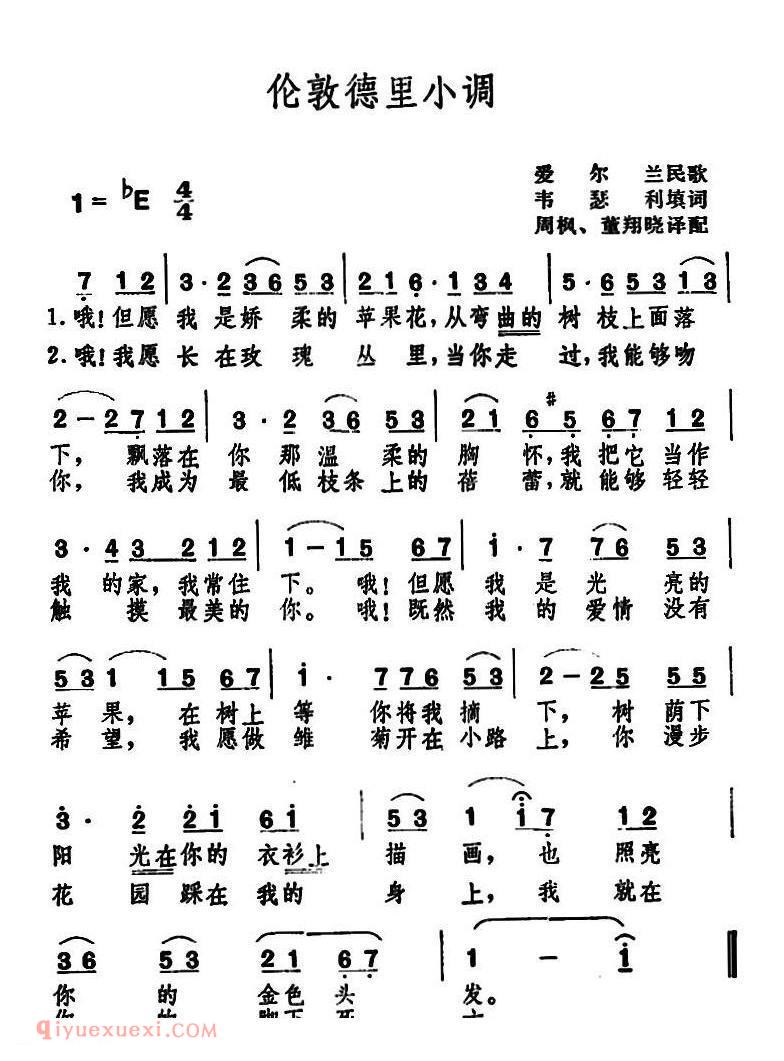 伦敦德里小调
爱尔兰民歌
1=♭E 4/4
韦瑟利填词
周枫、董翔晓译配
7 12 | 3·2 36 53 | 216·134 | 5·653 13 |
1.哦!但愿我是娇柔的苹果花,从弯曲的树枝上面落
2.哦!我愿长在玫瑰丛里,当你走过,我能够吻
2-27 12 | 3·2 36 53 | 21 6 #5 67 12 |
下,飘落在你那温柔的胸怀,我把它当作
你,我成为最低枝条上的蓓蕾,就能够轻轻
3·43 212 | 1-15 67 | 1·7 76 53 |
我的家,我常住下。哦!但愿我是光亮的
触摸最美的你。哦!既然我的爱情没有
531 15 67 | 1·77653 | 2-25 55 |
苹果,在树上等你将我摘下,树荫下
希望,我愿做雏菊开在小路上,你漫步
3·2 21 61 | 53 1 17 12 |
阳光在你的衣衫上描画,也照亮
花园踩在我的身上,我就在
36 53 21 67 | 1-1 ‖
你的金色头发。
qiyuexuexi.com